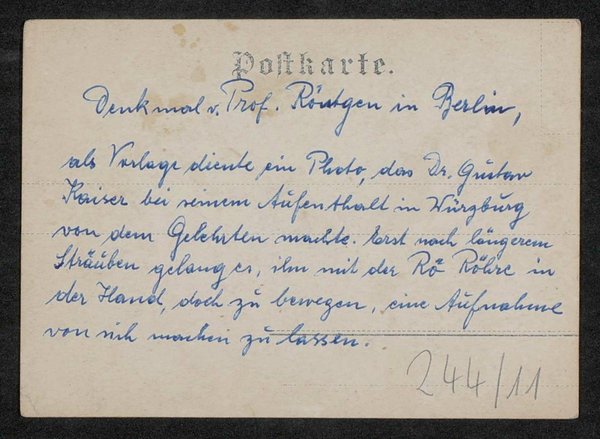 Postkarte.
Denkmal v. Prof. Röntgen in Berlin,
als Vorlage diente ein Photo, das Dr. Gustav
Kaiser bei seinem Aufenthalt in Würzburg
von dem Gelehrten machte. Erst nach längerem
Sträuben gelang es, ihm mit der Rö Röhre in
der Hand, doch zu bewegen, eine Aufnahme
von sich machen zu lassen.
244/11